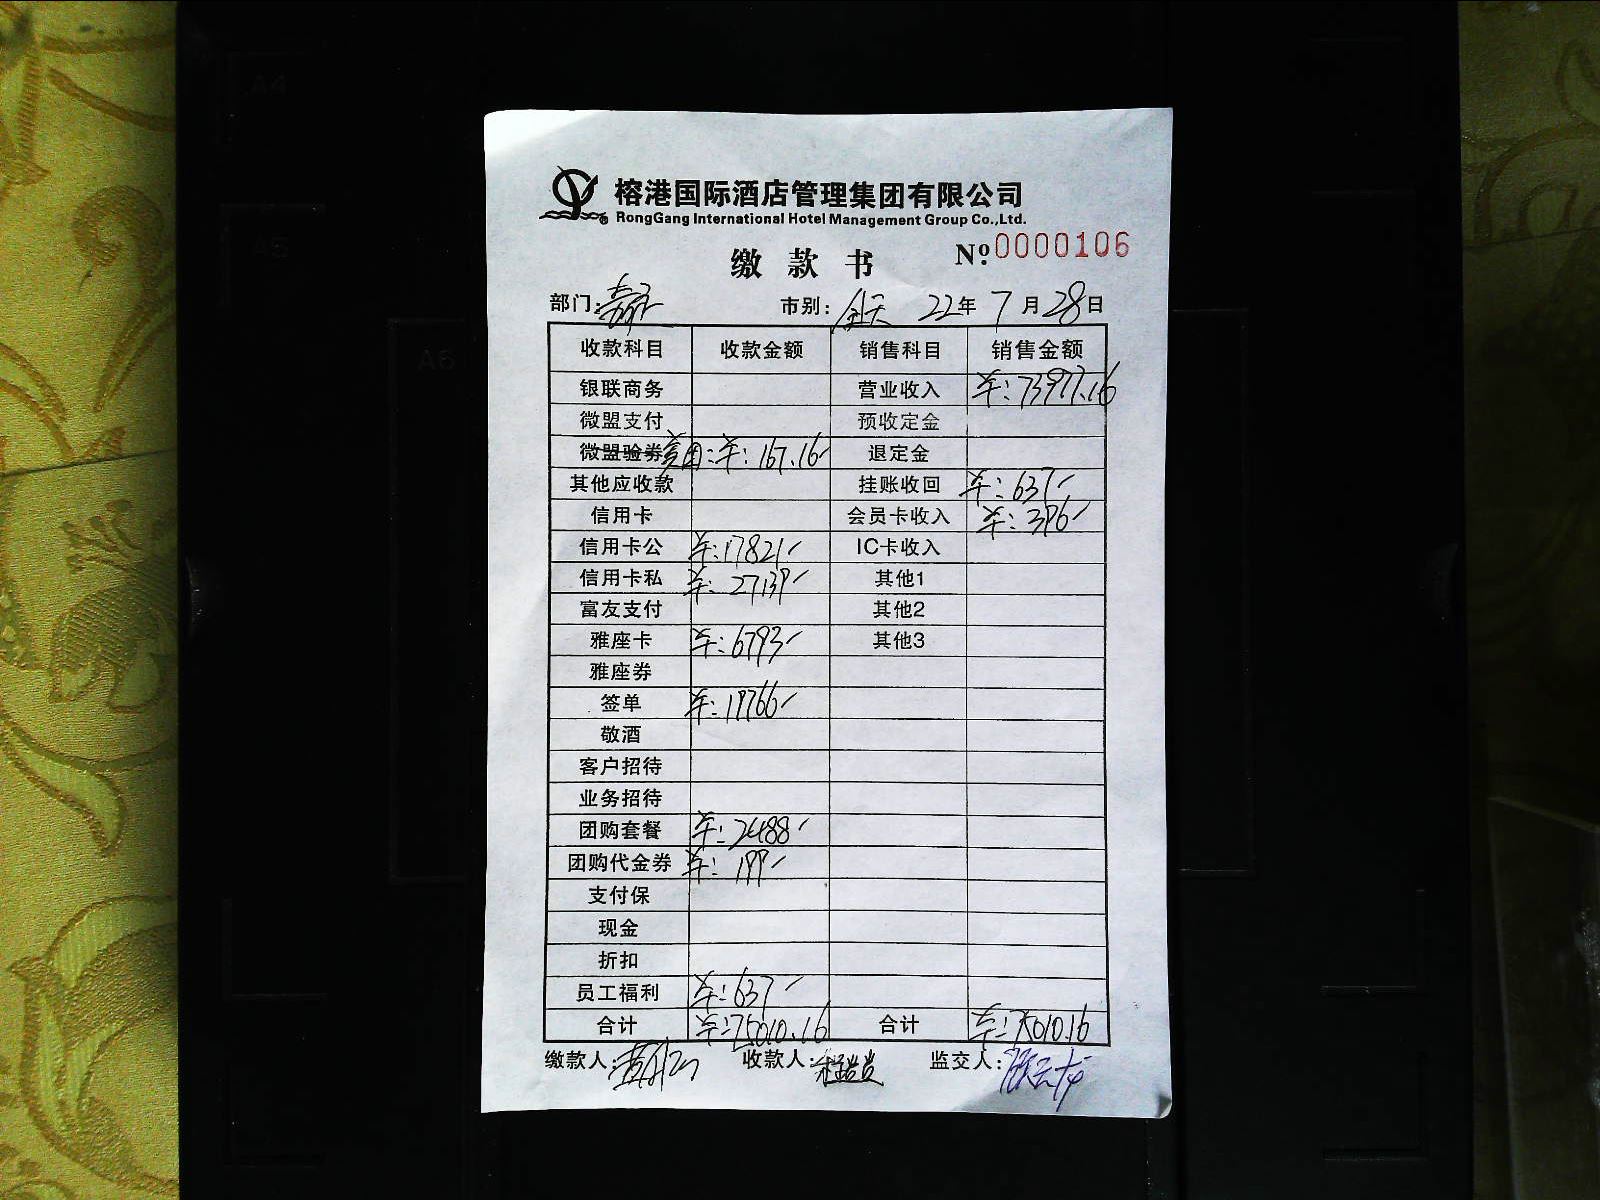 榕港国际酒店管理集团有限公司
RongGang International Hotel Management Group Co.,Ltd.
缴款书 Nº.0000106
部门: 市别: 全天 22年 7月 28日
收款科目 收款金额 销售科目 销售金额
银联商务 营业收入 卡:73977.16
微盟支付 预收定金
微盟验券 美团:卡:167.16 退定金
其他应收款 挂账收回 卡:637
信用卡 会员卡收入 卡:396
信用卡公 卡:17821 IC卡收入
信用卡私 卡:27139 其他1
富友支付 其他2
雅座卡 卡:6793 其他3
雅座券
签单 卡:19766
敬酒
客户招待
业务招待
团购套餐 卡:2488
团购代金券 卡:199
支付保
现金
折扣
员工福利 卡:637
合计 卡:75010.16 合计 卡:75010.16
缴款人: 收款人: 监交人:
A4
A5
A6